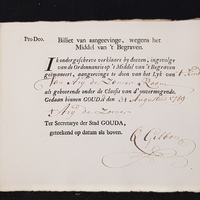 Pro Deo. Billet van aangeevinge, wegens het
Middel van 't Begraven.
IK ondergeschreve verklaare by deezen, ingevolge
van de Ordonnantie op 't Middel van 't Begraven
geëmaneert, aangeevinge te doen van het Lyk van 't Kind
van Ary de
als gehoorende onder de Classis van d'onvermogende.
Gedaan binnen GOUDA den 31 Augustus
Ary de
Ter Secretarye der Stad GOUDA,
geteekend op datum als boven.